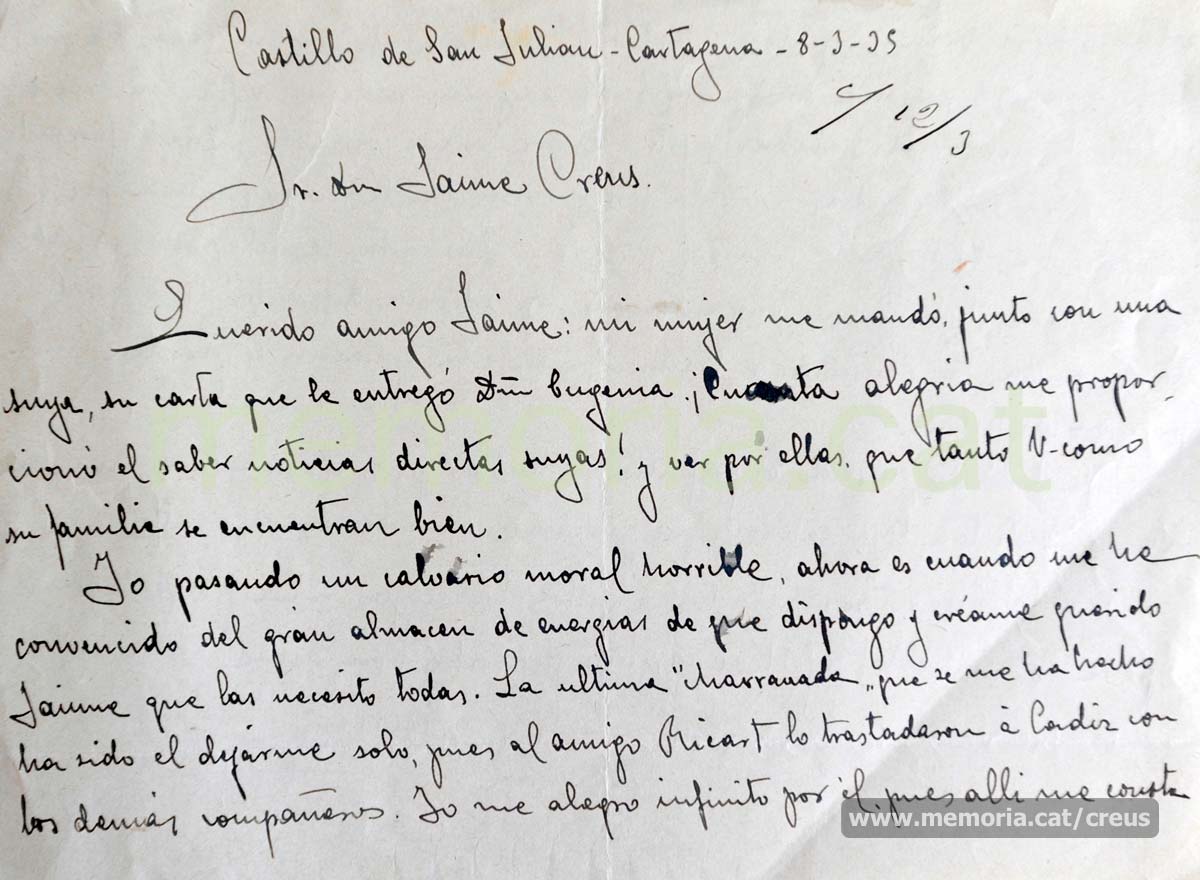 Castillo de San Julian - Cartagena - 8-3-35
12/3
Sr. Dn Jaime Creus.
Querido amigo Jaime: mi mujer me mandó, junto con una
suya, su carta que le entregó Dñ Eugenia. ¡Cuanta alegria me propor-
cionó el saber noticias directas suyas! y ver por ellas, que tanto V. como
su familia se encuentran bien.
Yo pasando un calvario moral horrible, ahora es cuando me he
convencido del gran almacen de energias de que dispongo y créame querido
Jaime que las necesito todas. La ultima "marranada" que se me ha hecho
ha sido el dejárme solo, pues al amigo Ricart lo trastadaron à Cadiz con
los demás compañeros. Yo me alegro infinito por él, pues alli me consta
memoria.cat
www.memoria.cat/creus